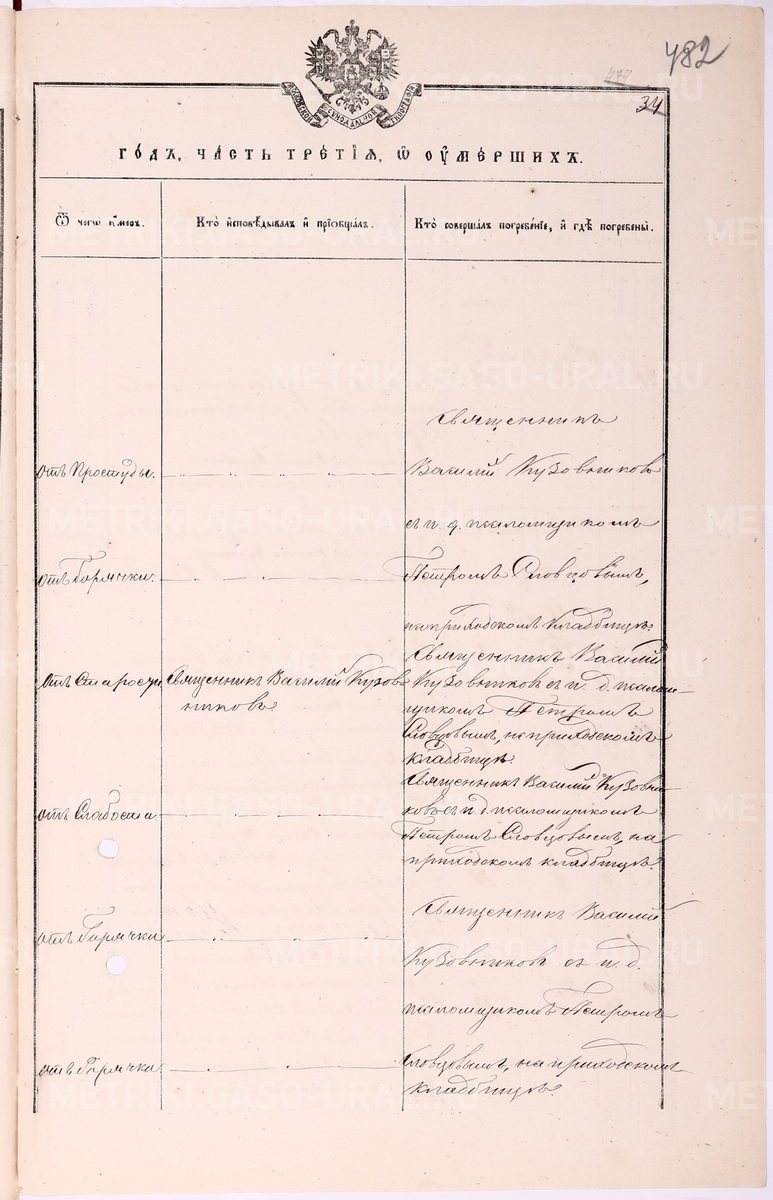 482
474
34
МОСКОВСКОЙ СѴНОДАЛЬНОЙ ТИПОГРАФІИ
го́дъ, ча́сть тре́тїѧ, ѡ҆ оу҆ме́ршихъ.
Ѿ чегѡ̀ оу҆́меръ.
Кто̀ и҆сповѣ́дывалъ и҆ прїѡбща́лъ.
Кто̀ соверша́лъ погребе́нїе, и҆ гдѣ̀ погребены̀.
Священникъ
отъ Простуды.
Василій Кузовниковъ
съ и. д. псаломщикомъ
отъ Горячки.
Петромъ Словцовымъ,
на приходскомъ кладбищѣ.
отъ Старости
Священникъ Василій Кузов-
никовъ
Священникъ Василій
Кузовниковъ съ и. д. псалом-
щикомъ Петромъ
Словцовымъ, на приходскомъ
кладбищѣ.
отъ Слабости.
Священникъ Василій Кузовни-
ковъ съ и д. псаломщикомъ
Петромъ Словцовымъ, на
приходскомъ кладбищѣ.
отъ Горячки
Священникъ Василій
Кузовниковъ съ и. д.
псаломщикомъ Петромъ
отъ Горячки
Словцовымъ, на приходскомъ
кладбищѣ.
METRIKI.SASO-URAL.RU